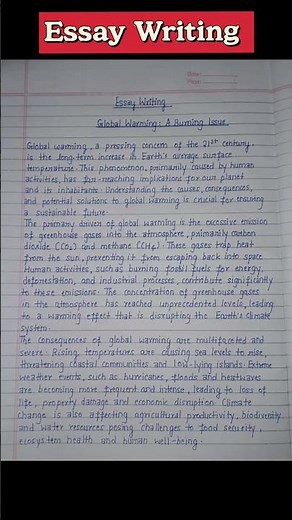 Essay Writing
Essay Writing
Global Warming : A Burning Issue
Global warming, a pressing concern of the 21st century
is the long-term increase in Earth's average surface
temperature. This phenomenon, primarily caused by human
activities, has far-reaching implications for our planet
and its inhabitants. Understanding the causes, consequences,
and potential solutions to global warming is crucial for ensuring
a sustainable future.
The primary driver of global warming is the excessive emission
of greenhouse gases into the atmosphere, primarily carbon
dioxide (CO₂) and methane (CH₄). These gases trap heat
from the sun, preventing it from escaping back into space
Human activities, such as burning fossil fuels for energy,
deforestation, and industrial processes, contribute significantly
to these emissions. The concentration of greenhouse gases
in the atmosphere has reached unprecedented levels, leading
to a warming effect that is disrupting the Earth's climate
system.
The consequences of global warming are multifaceted and
severe. Rising temperatures are causing sea levels to rise,
threatening coastal communities and low-lying islands. Extreme
weather events, such as hurricanes, floods and heatwaves
are becoming more frequent and intense, leading to loss of
life, property damage and economic disruption. Climate
change is also affecting agricultural productivity, biodiversity
and water resources posing challenges to food security,
ecosystem health and human well-being.